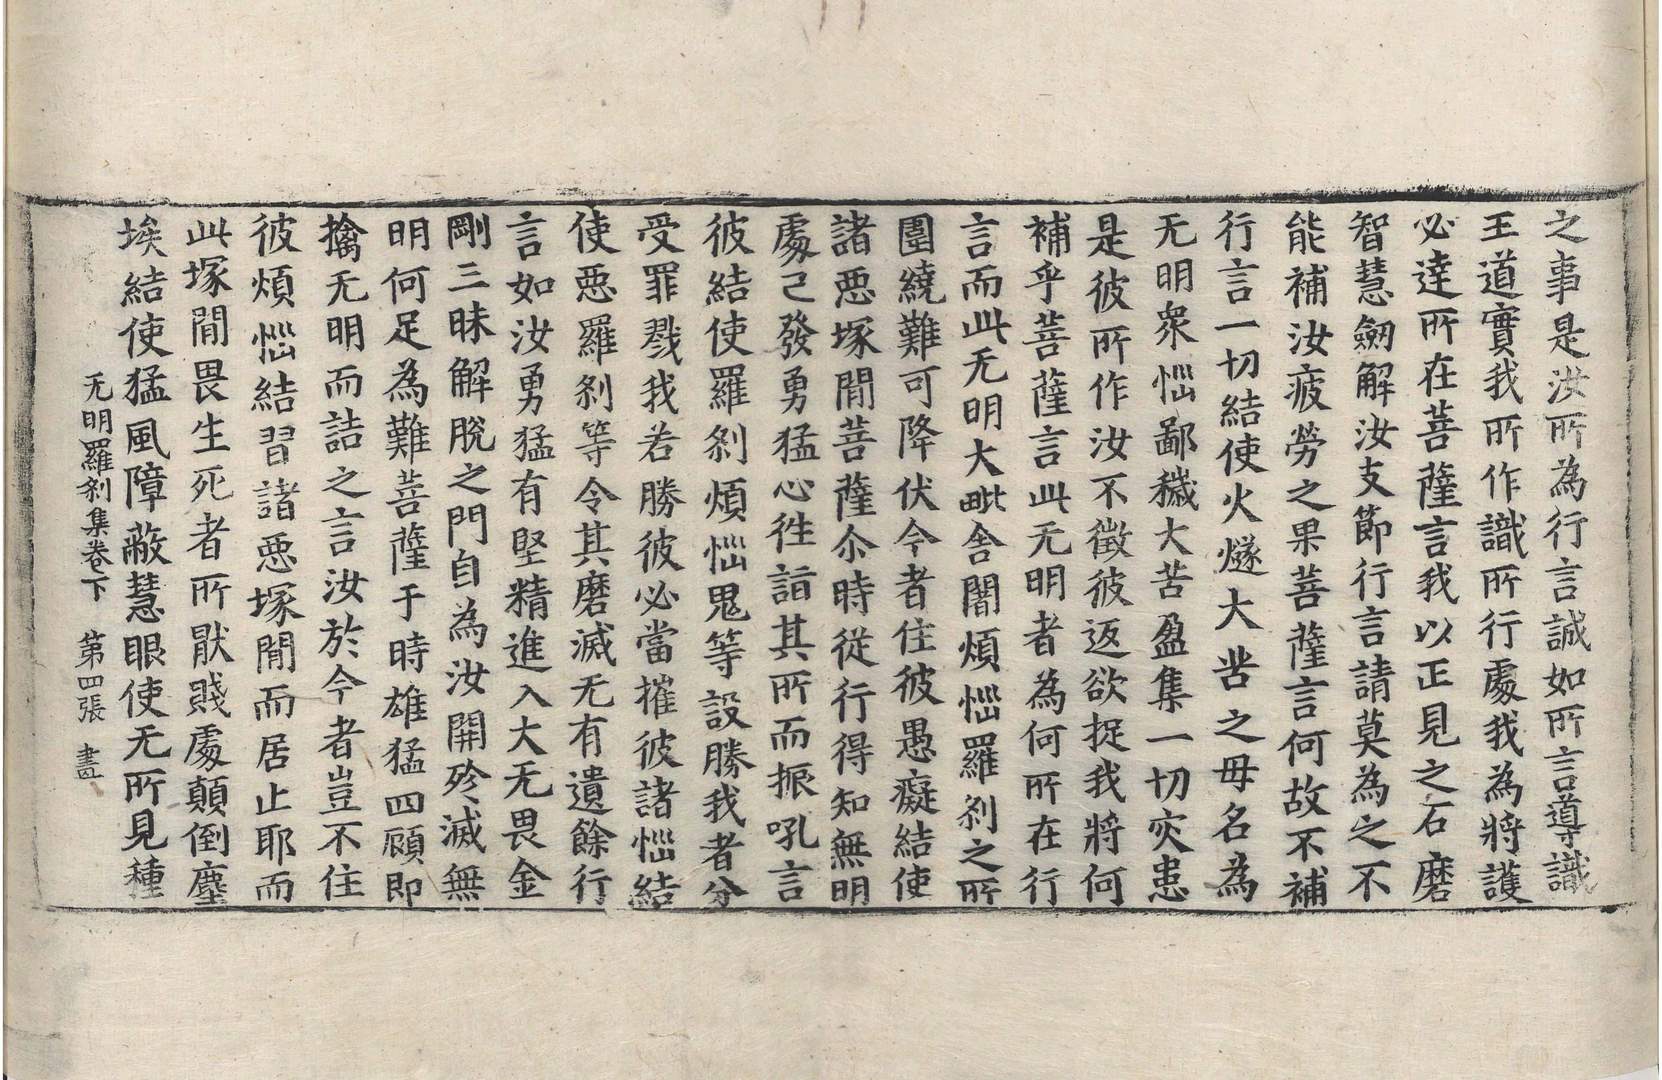 之事是汝所為行言誠如所言導識
王道實我所作識所行處我為將護
必達所在菩薩言我以正見之石磨
智慧劒解汝支節行言請莫為之不
能補汝疲勞之果菩薩言何故不補
行言一切結使火燧大苦之母名為
无明衆惱鄙穢大苦盈集一切灾患
是彼所作汝不徵彼返欲捉我將何
補乎菩薩言此无明者為何所在行
言而此无明大毗舍闍煩惱羅剎之所
圍繞難可降伏今者住彼愚癡結使
諸惡塚間菩薩尒時從行得知無明
處已發勇猛心徃詣其所而振吼言
彼結使羅剎煩惱鬼等設勝我者分
受罪戮我若勝彼必當摧彼諸惱結
使惡羅剎等令其磨滅无有遺餘行
言如汝勇猛有堅精進入大无畏金
剛三昧解脫之門自為汝開殄滅無
明何足為難菩薩于時雄猛四顧即
擒无明而詰之言汝於今者豈不住
彼煩惱結習諸惡塚間而居止耶而
此塚間畏生死者所猒賤處顛倒塵
埃結使猛風障蔽慧眼使无所見種
无明羅剎集卷下　第四張　晝